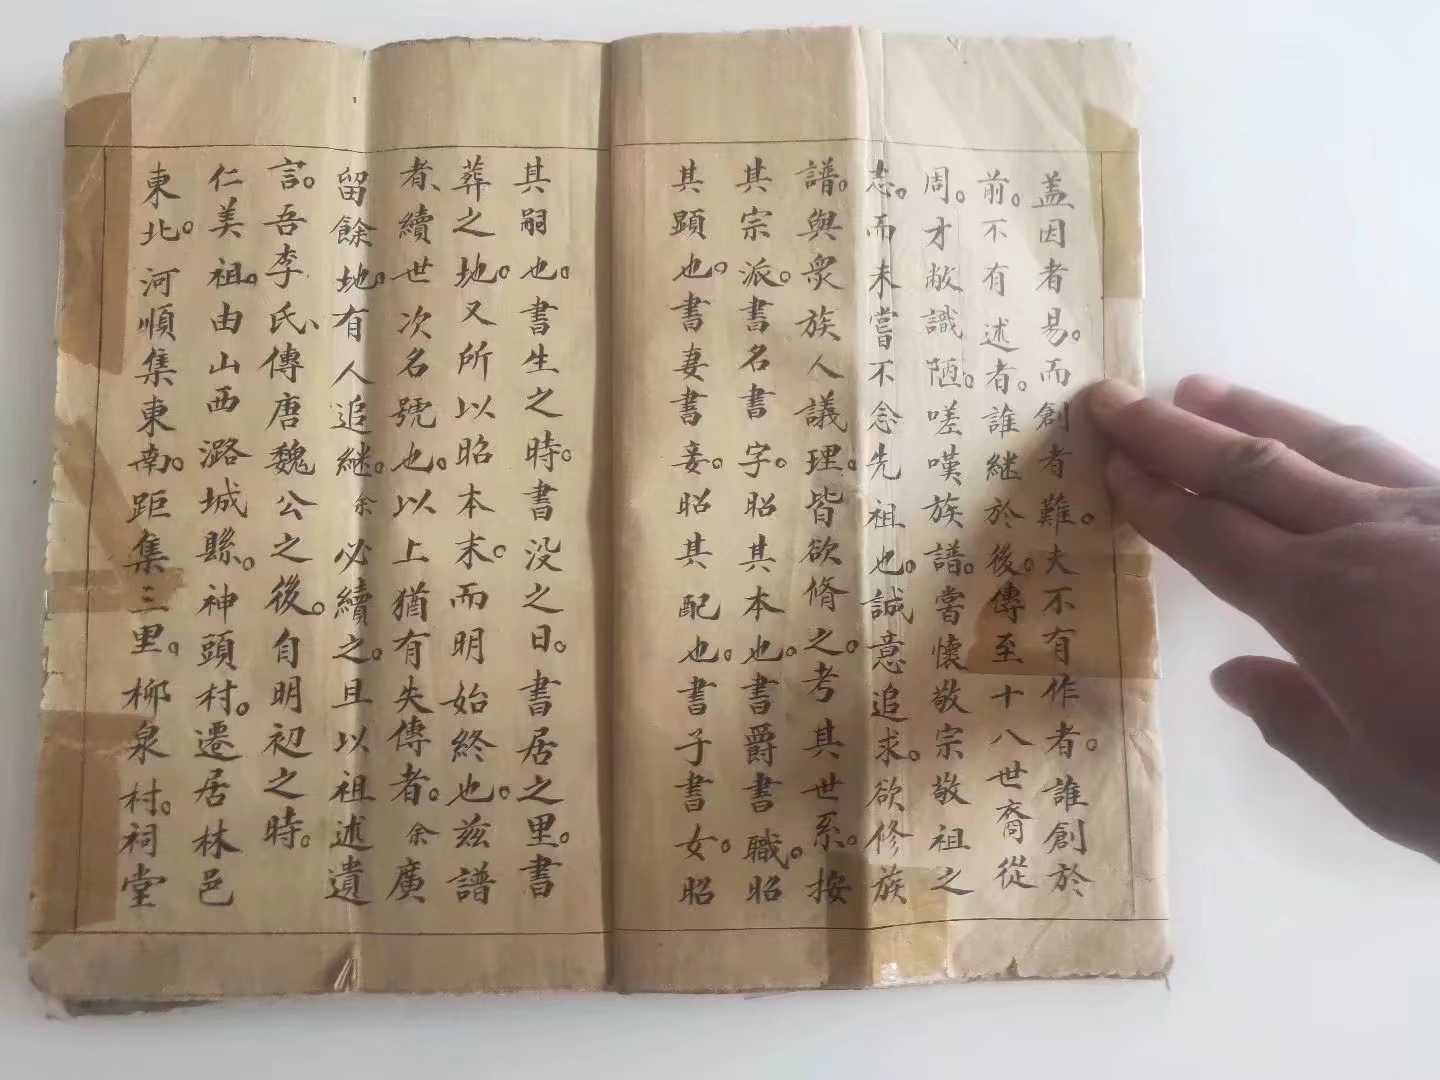 盖因者易。而創者難。夫不有作者。誰創於
前。不有述者。誰継於後。傳至十八世裔從
周。才敝識陋。嗟嘆族譜。嘗懷敬宗敬祖之
志。而未嘗不念先祖也。誠意追求。欲修族
譜。與衆族人議理。皆欲脩之。考其世系。按
其宗派。書名書字。昭其本也。書爵書職。昭
其顕也。書妻書妾。昭其配也。書子書女。昭
其嗣也。書生之時。書没之日。書居之里。書
葬之地。又所以昭本末。而明始終也。兹譜
者、續世次名號也。以上猶有失傳者。余廣
留餘地。有人追継。余必續之。且以祖述遺
言。吾李氏、傳唐魏公之後。自明初之時。
仁美祖。由山西潞城縣。神頭村。遷居林邑
東北。河順集東南。距集三里。柳泉村。祠堂